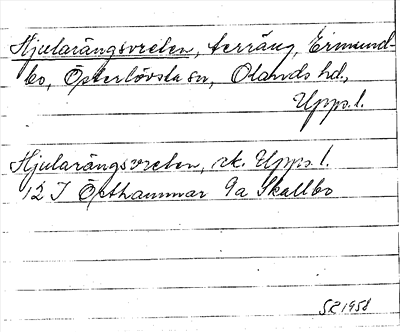 Hjularängsvreten, terräng, Ermund-
bo, Österlövsta sn, Olands hd.,
Upps. l.
Hjularängsvreten, ek. Upps. l.
12 I Östhammar 9a Skallbo
SR 1958